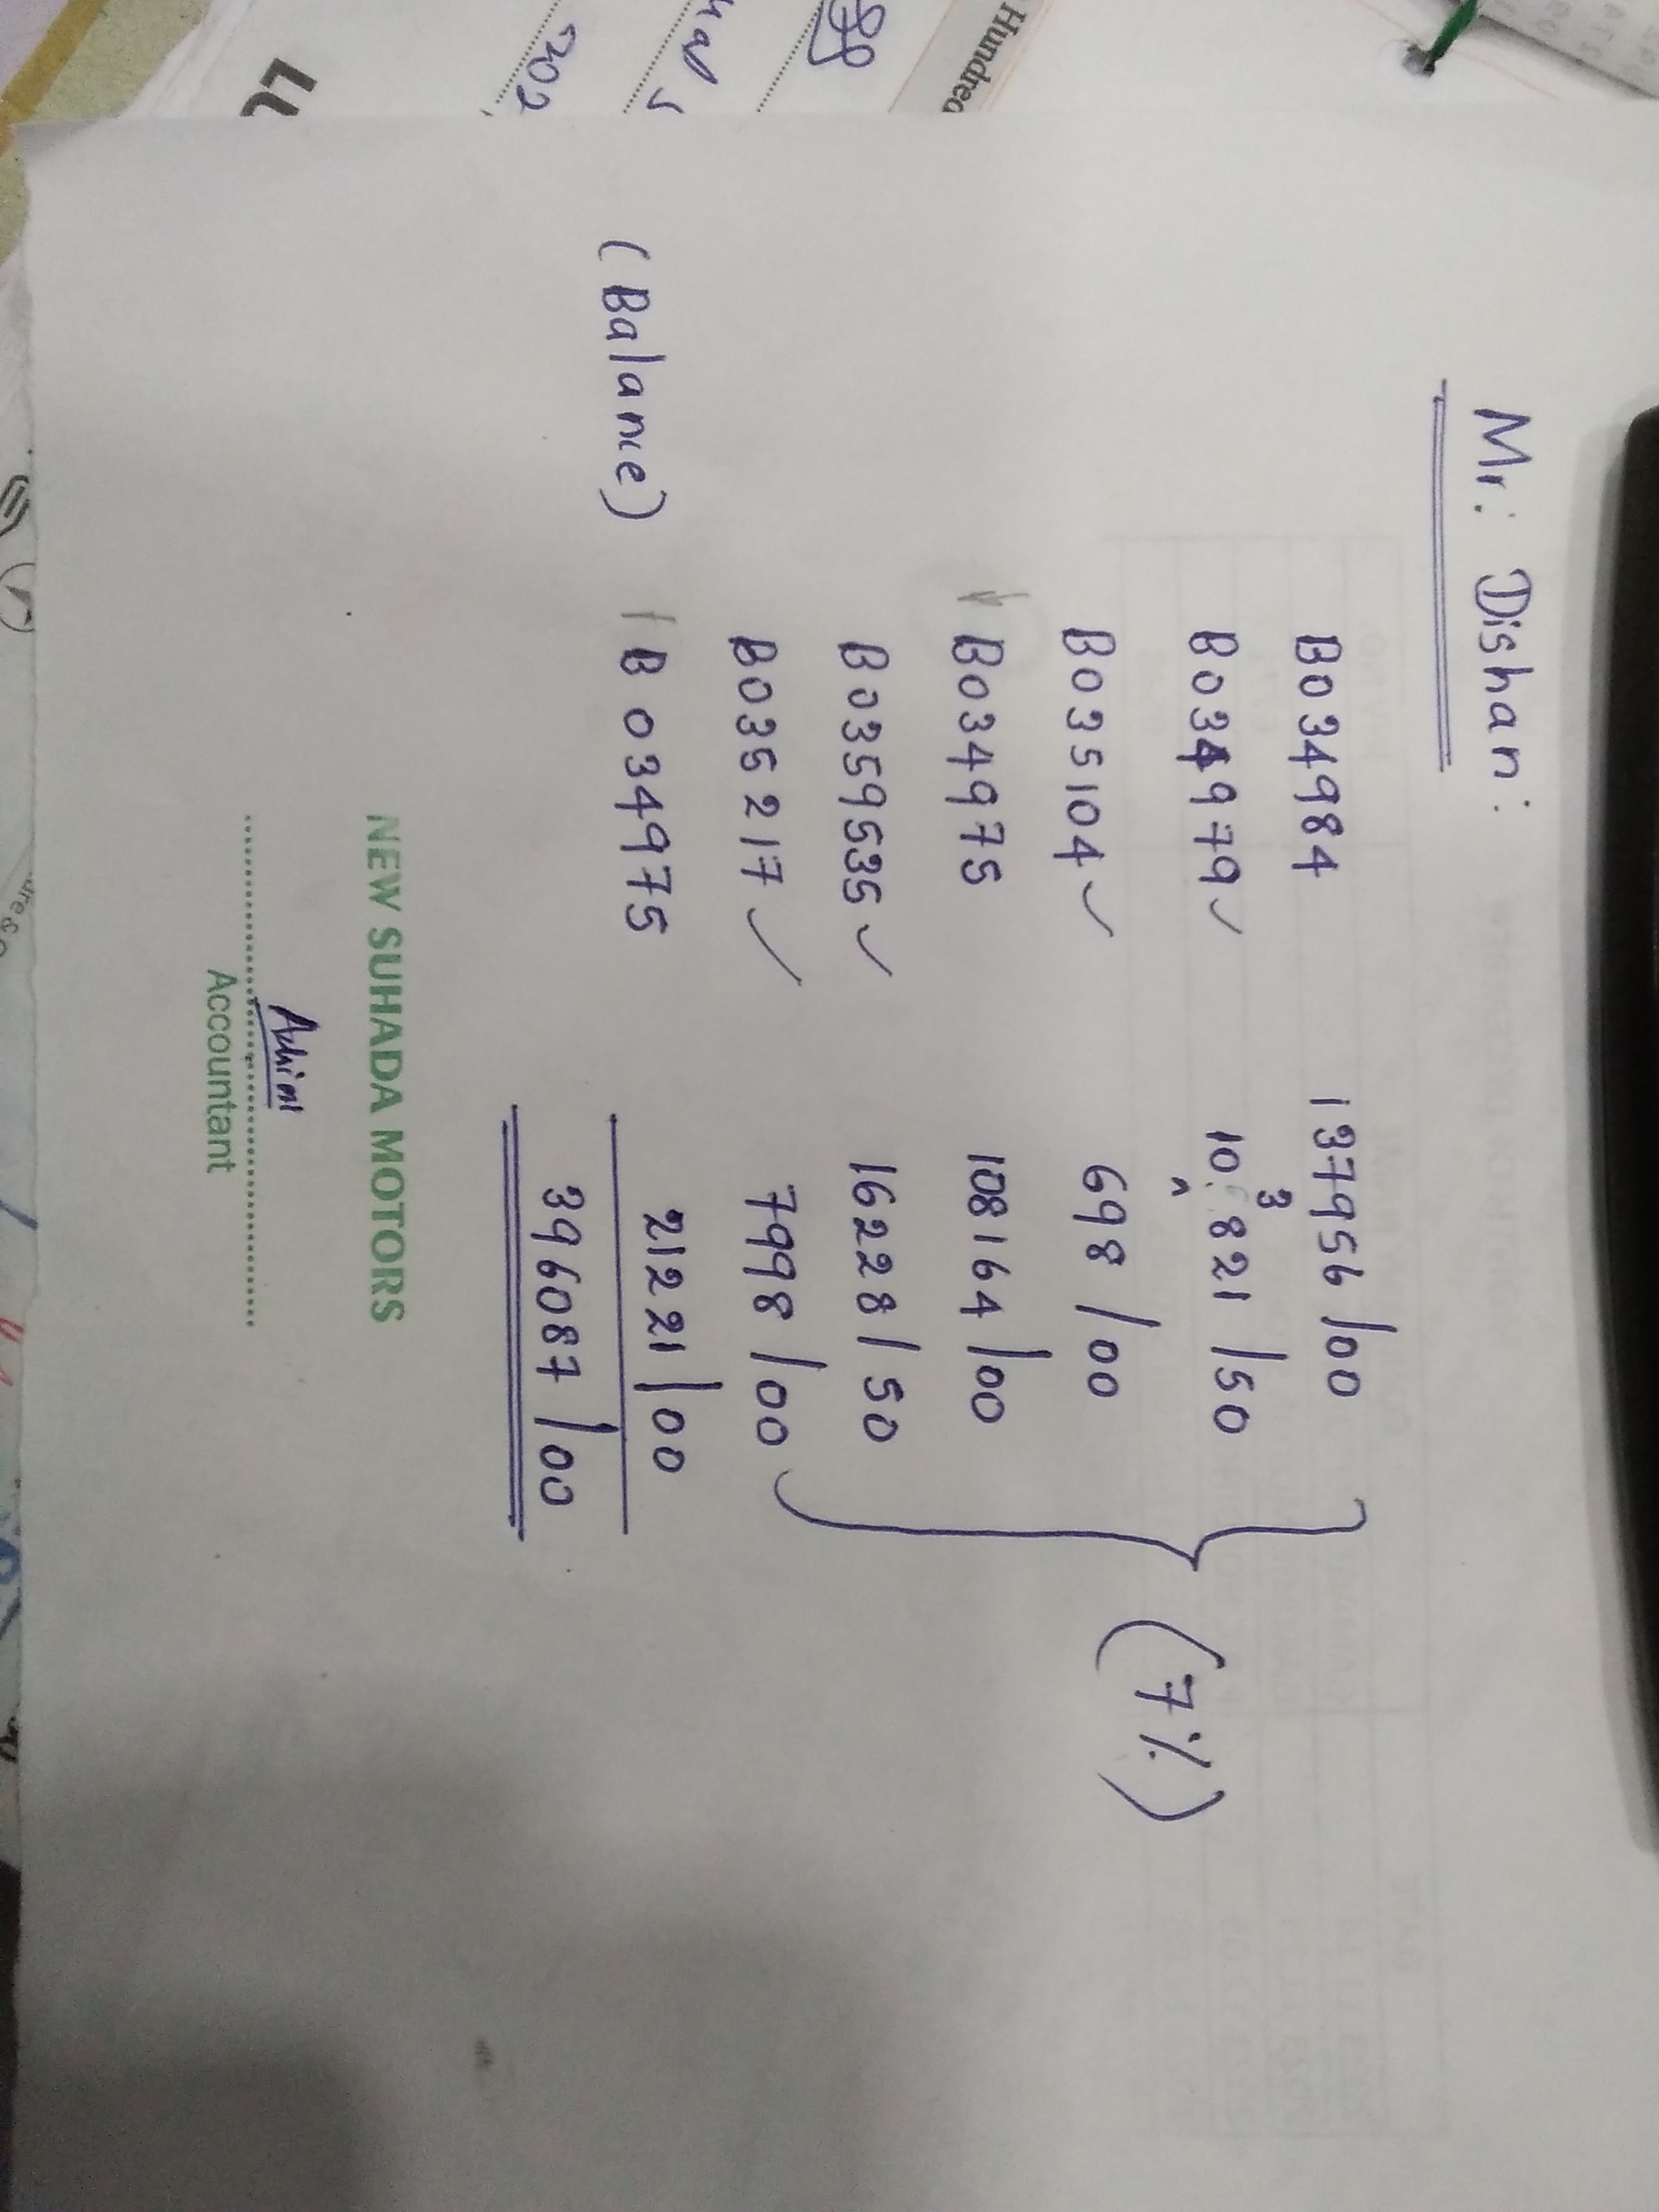 Hundred
202
Mr: Dishan:
B034984 137956/00
B034979 ✓ 103821/50
B035104 ✓ 698/00
B034975 108164/00 (7%)
B0359535 ✓ 16228/50
B035217 ✓ 7998/00
(Balance) B034975 21221/00
396087/00
NEW SUHADA MOTORS
Accountant